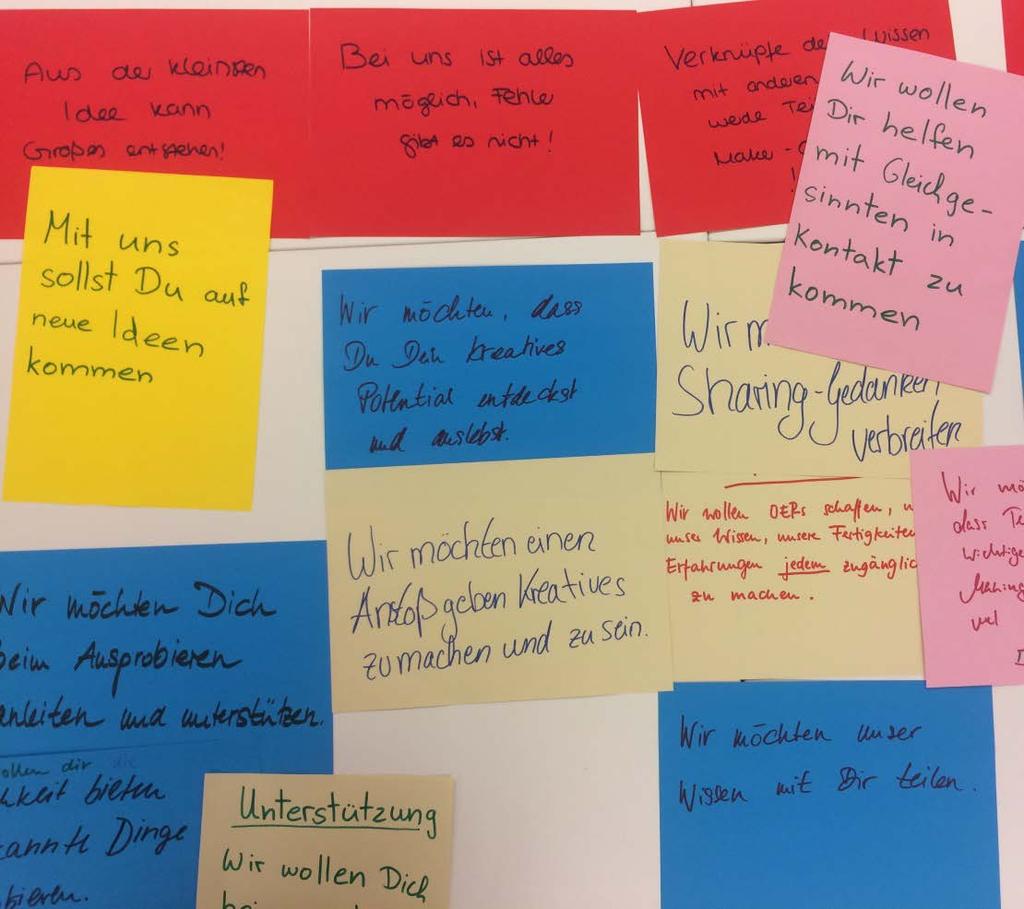 Aus der kleinsten
Idee kann
Großes entstehen!
Bei uns ist alles
möglich, Fehler
gibt es nicht!
Verknüpfe de Wissen
mit anderen
werde Tei
Make-
!
Wir wollen
Dir helfen
mit Gleichge-
sinnten in
Kontakt zu
kommen
Mit uns
sollst Du auf
neue Ideen
kommen
Wir möchten, dass
Du Dein kreatives
Potential entdeckst
und auslebst.
Wir m
Sharing-Gedanken
verbreiten
Wir möchten einen
Anstoß geben Kreatives
zu machen und zu sein.
Wir wollen OERs schaffen, u
unser Wissen, unsere Fertigkeiten
Erfahrungen jedem zugänglic
zu machen.
Wir mö
dass Te
wichtige
Making
Wir möchten Dich
beim Ausprobieren
anleiten und unterstützen.
ollen dir die
hkeit bieten
kannte Dinge
bieren.
Unterstützung
Wir wollen Dich
Wir möchten unser
Wissen mit Dir teilen.